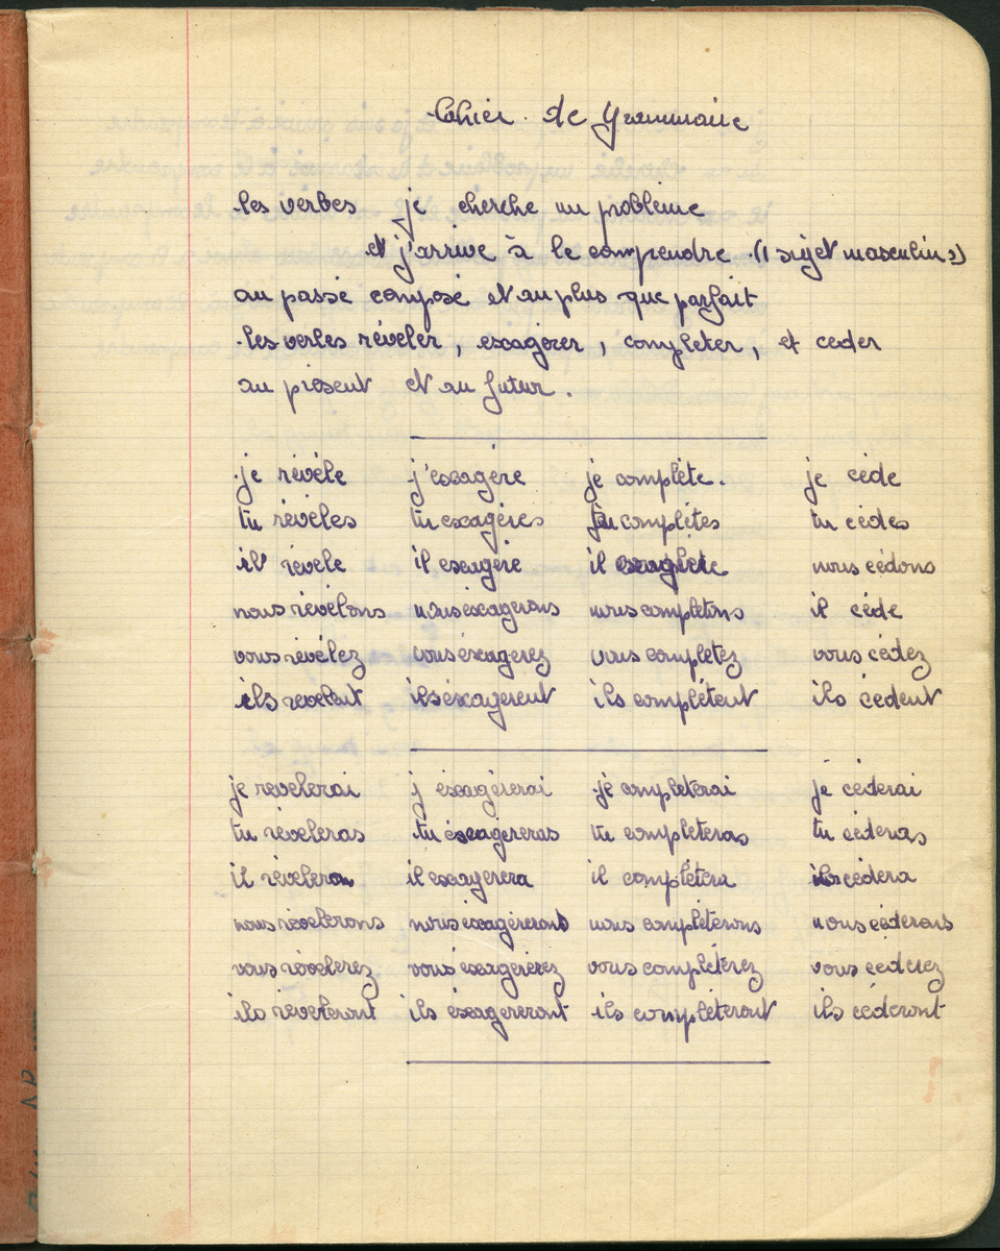 Cahier de Grammaire
les verbes je cherche un problème
et j'arrive à le comprendre (1 sujet masculin)
au passé composé et au plus que parfait
les verbes révéler, exagérer, compléter, et céder
au présent et au futur.
je révèle j'exagère je complète. je cède
tu révèles tu exagères tu complètes tu cèdes
il révèle il exagère il nous cédons
nous révélons nous éxagerons nous complétons il cède
vous révélez vous éxagerez vous complétez vous cédez
ils révèlent ils éxagèrent ils complètent ils cèdent
je révèlerai j'éxagèrerai je complèterai je cèderai
tu révèleras tu éxagèreras tu complèteras tu cèderas
il révèlera il exagèrera il complètera il cèdera
nous révèlerons nous éxagèrerons nous complèterons nous cèderons
vous révèlerez vous éxagèrerez vous complèterez vous cèderez
ils révèleront ils éxagèreront ils complèteront ils cèderont